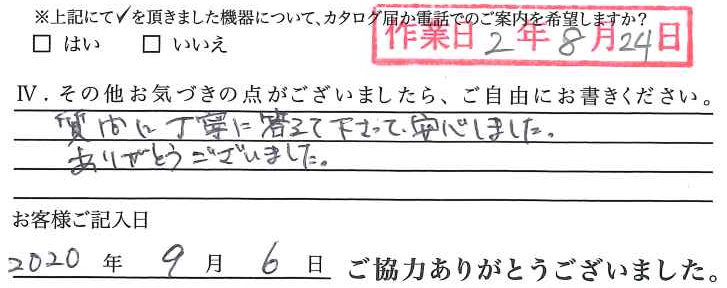 ※上記にて✓を頂きました機器について、カタログ届か電話でのご案内を希望しますか?
□ はい □ いいえ
作業日 2年8月24日
Ⅳ. その他お気づきの点がございましたら、ご自由にお書きください。
質問に丁寧に答えて下さって、安心しました。
ありがとうございました。
お客様ご記入日
2020 年 9 月 6 日 ご協力ありがとうございました。